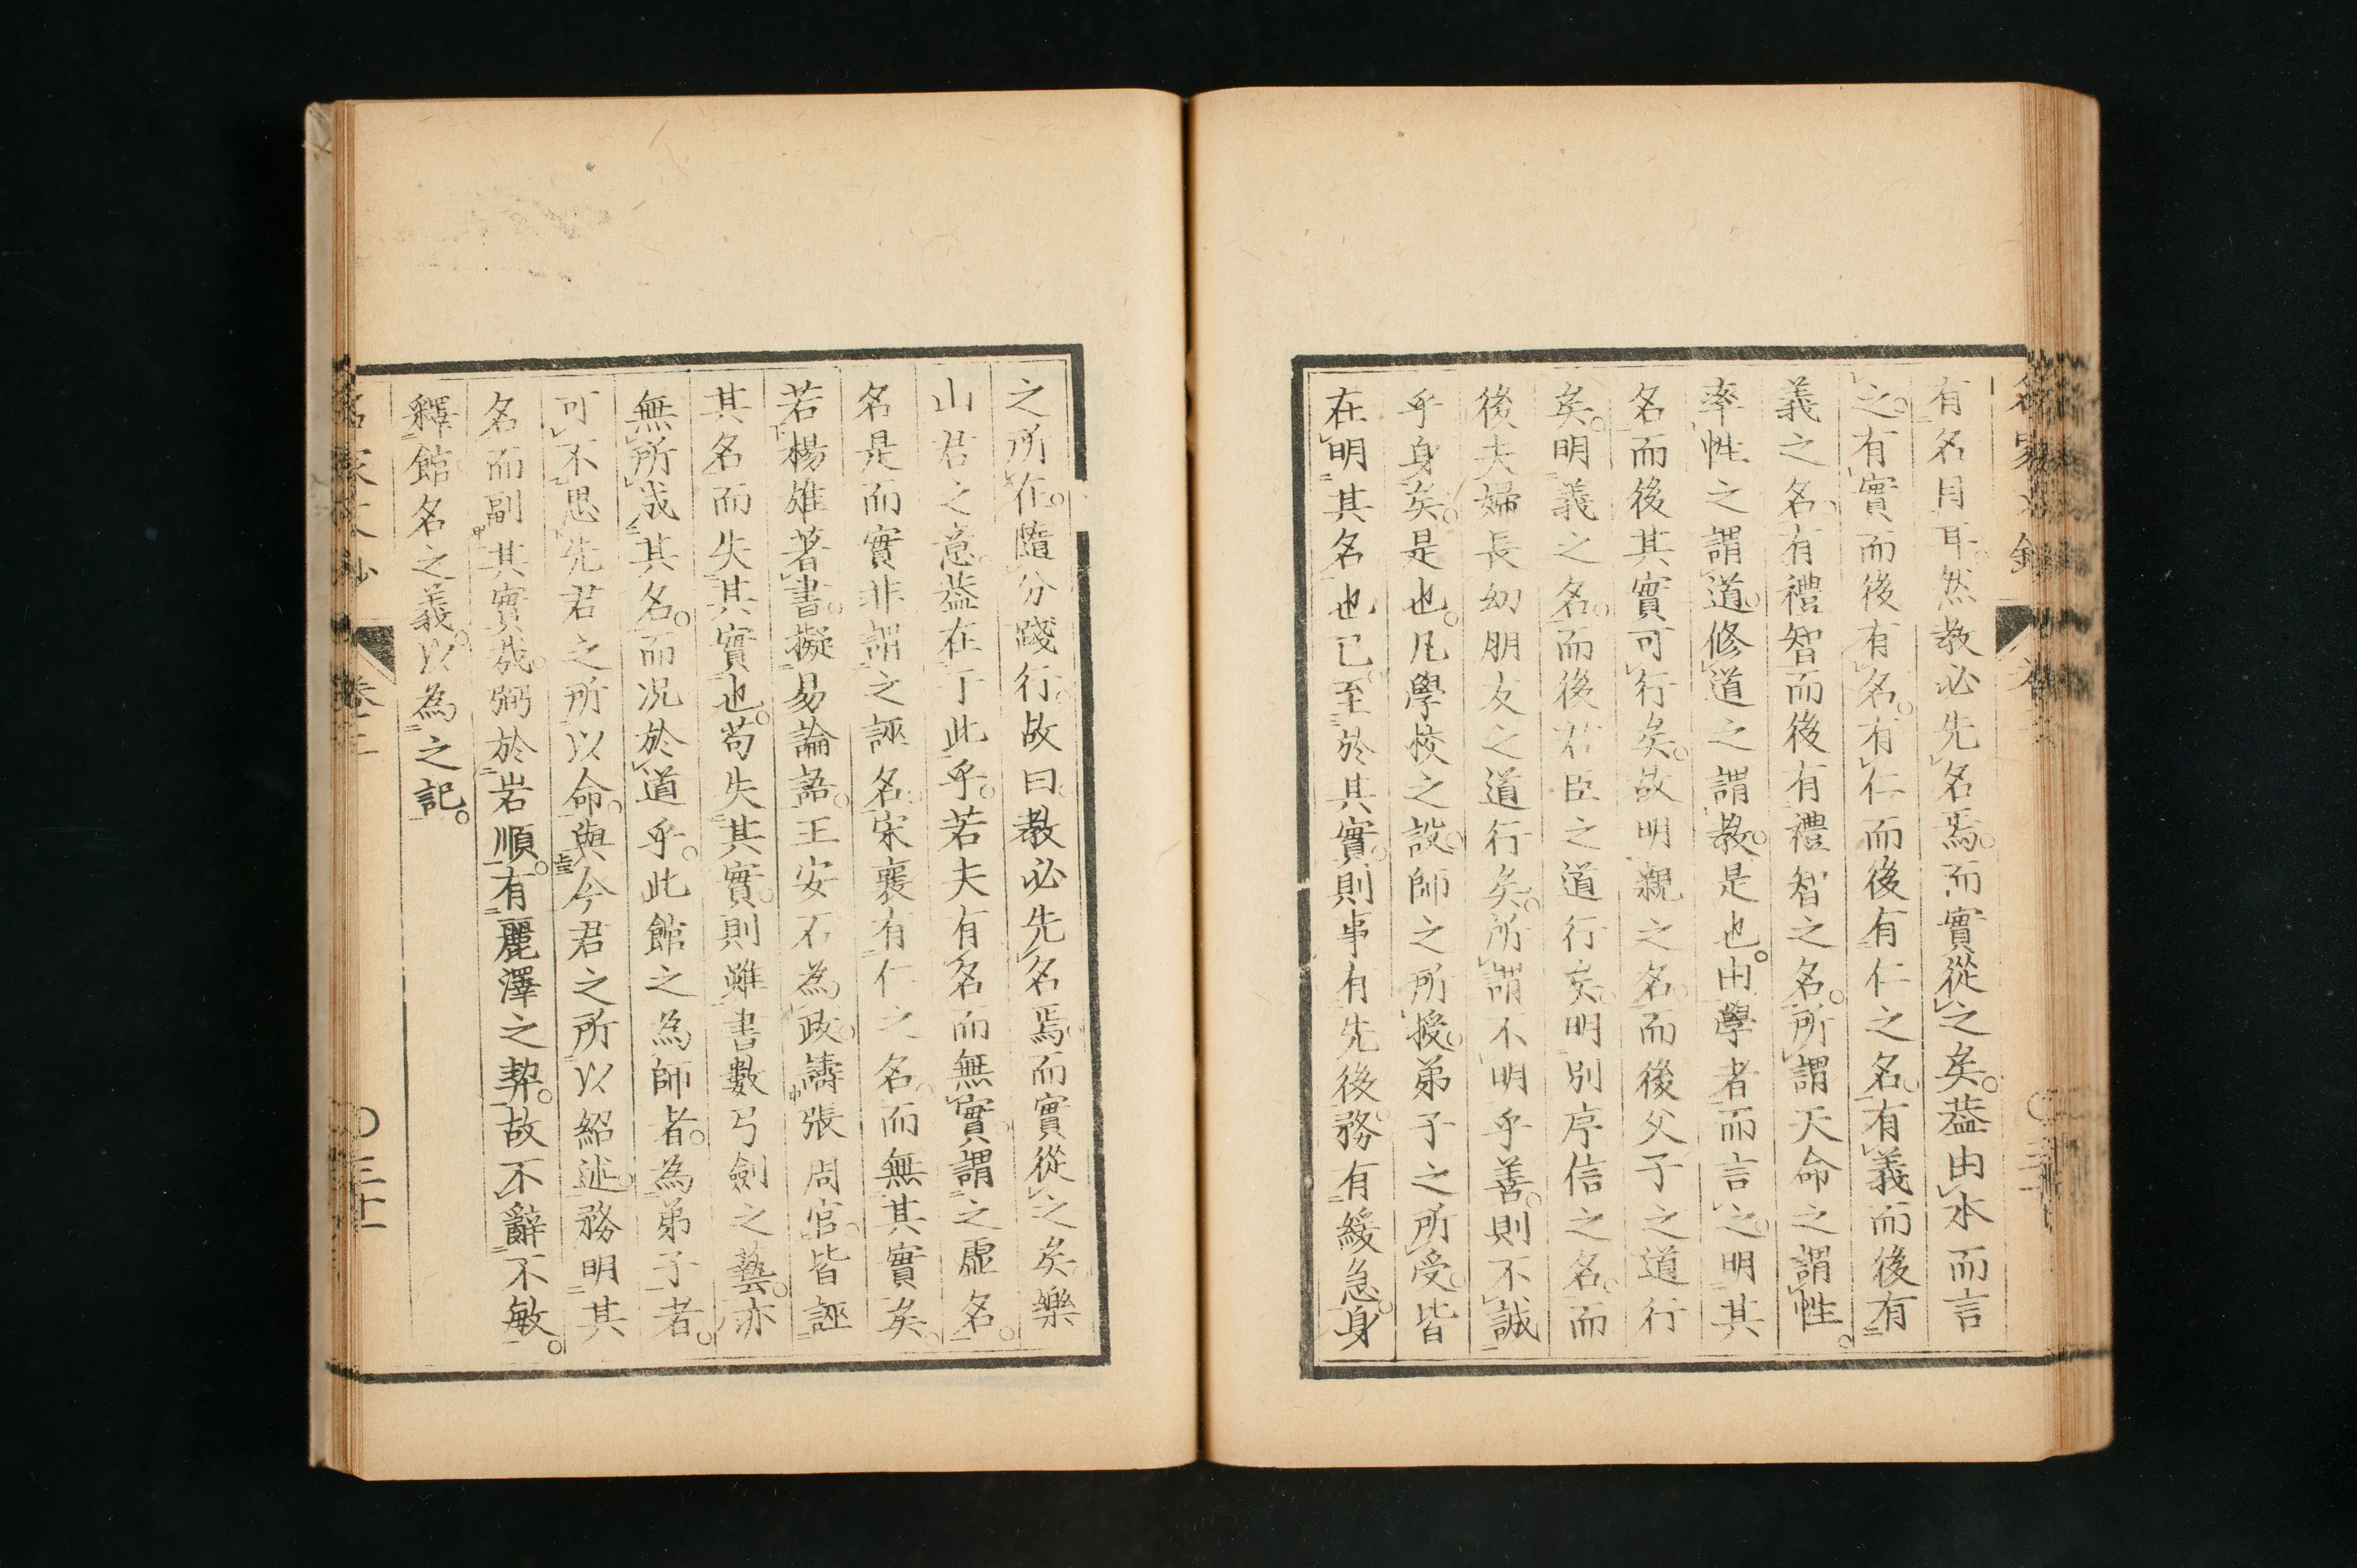 有名目耳然教必先名焉。而實從之矣。葢由水而言
之。有實而後有名。有仁而後有仁之名。有義而後有
義之名。有禮智而後有禮智之名。所謂天命之謂性。
率性之謂道。修道之謂教。是也。由學者而言之。明其
名而後其實可行矣。故明親之名。而後父子之道行
矣。明義之名。而後君臣之道行矣。明別序信之名。而
後夫婦長幼朋友之道行矣。所謂不明乎善。則不誠
乎身矣。是也。凡學校之設。師之所授。弟子之所受。皆
在明其名也已。至於其實。則事有先後。務有緩急。身
之所在。隨分踐行。故曰。教必先名焉。而實從之矣。樂
山君之意。葢在于此乎。若夫有名而無實。謂之虛名。
名是而實非。謂之誣名。宋襄有仁之名。而無其實矣。
若楊雄著書。擬易論語。王安石為政。譸張周官。皆誣
其名而失其實也。苟失其實。則雖書數弓劍之藝。亦
無所成其名。而況於道乎。此館之為師者。為弟子者。
可不思先君之所以命。與今君之所以紹述。務明其
名而副其實哉。弼於岩順。有麗澤之契。故不辭不敏。
釋館名之義。以為之記。
名家文抄 卷三 〇三十一